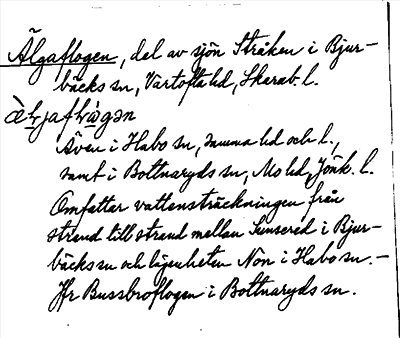 Älgaflogen, del av sjön Stråken i Bjur-
bäcks sn, Vartofta hd, Skarab. l.
Även i Habo sn, samma hd och l.,
samt i Bottnaryds sn, Mo hd, Jönk. l.
Omfattar vattensträckningen från
strand till strand mellan Sunnered i Bjur-
bäcks sn och lägenheten Nón i Habo sn. -
Jfr Bussbroflogen i Bottnaryds sn.